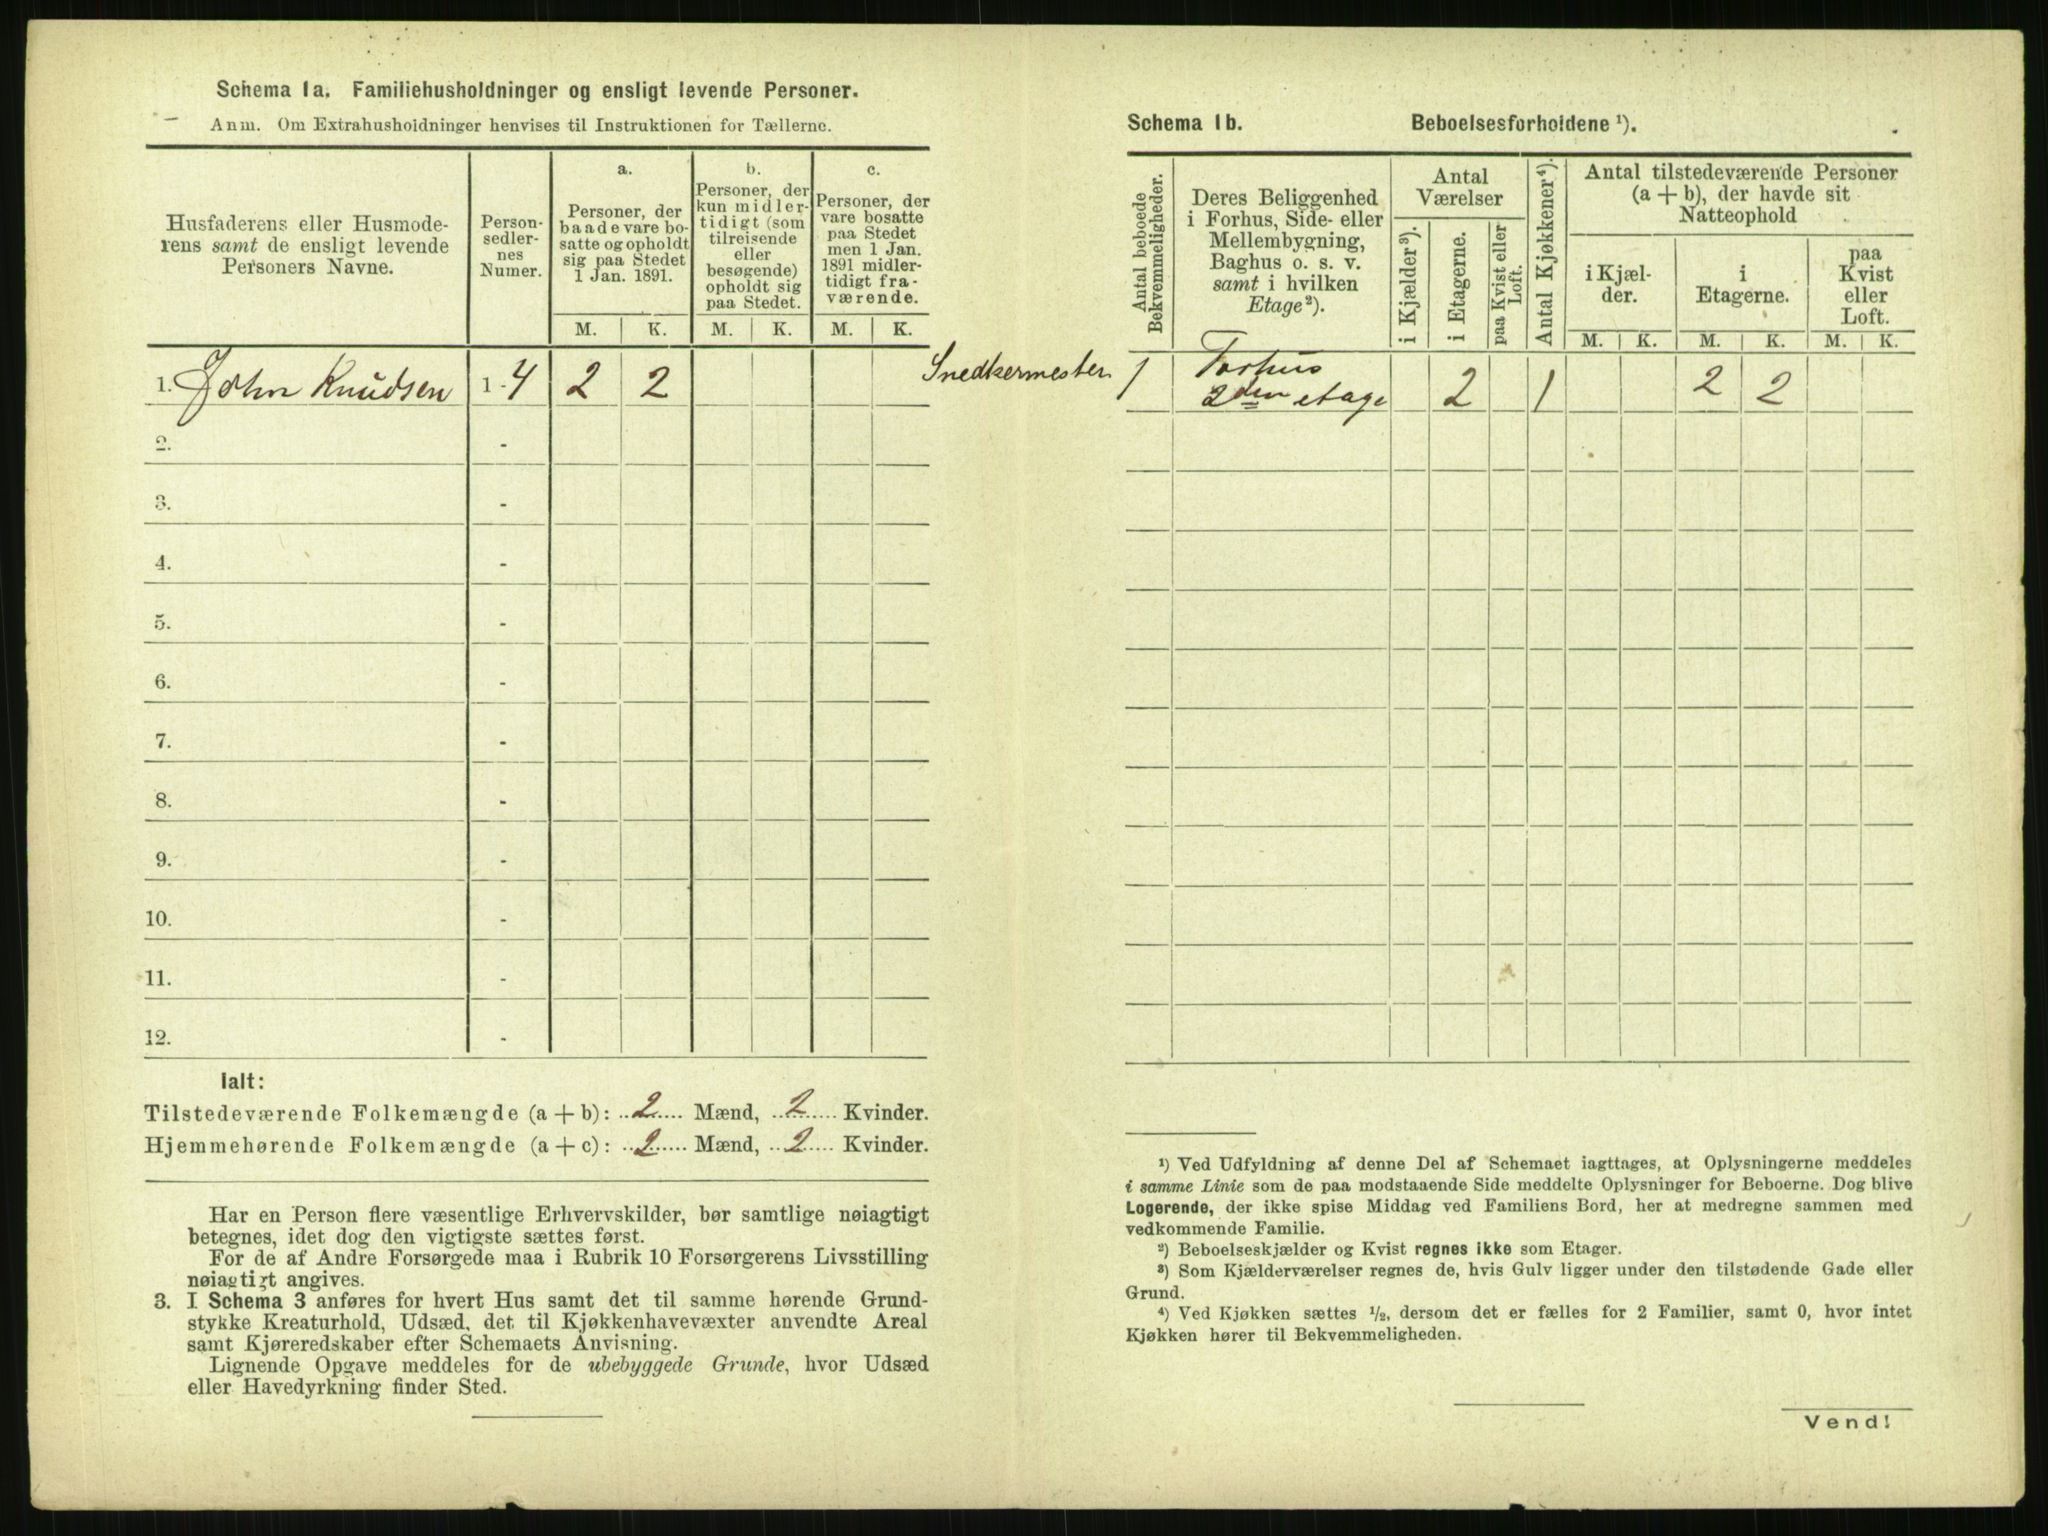 Schema 1a. Familiehusholdninger og ensligt levende Personer.
Anm. Om Extrahusholdninger henvises til Instruktionen for Tællerne.
Husfaderens eller Husmode-
rens samt de ensligt levende
Personers Navne.
Person-
sedler-
nes
Numer.
a.
Personer, der
baade vare bo-
satte og opholdt
sig paa Stedet
1 Jan. 1891.
b.
Personer, der
kun midler-
tidigt (som
tilreisende
eller
besøgende)
opholdt sig
paa Stedet.
c.
Personer, der
vare bosatte
paa Stedet
men 1 Jan.
1891 midler-
tidigt fra-
værende.
M. K. M. K. M. K.
1. John Knudsen 1-4 2 2 Snedkermester
2. -
3. -
4. -
5. -
6. -
7. -
8. -
9. -
10. -
11. -
12. -
Ialt:
Tilstedeværende Folkemængde (a + b): 2 Mænd, 2 Kvinder.
Hjemmehørende Folkemængde (a + c): 2 Mænd, 2 Kvinder.
Har en Person flere væsentlige Erhvervskilder, bør samtlige nøiagtigt
betegnes, idet dog den vigtigste sættes først.
For de af Andre Forsørgede maa i Rubrik 10 Forsørgerens Livsstilling
nøiagtigt angives.
3. I Schema 3 anføres for hvert Hus samt det til samme hørende Grund-
stykke Kreaturhold, Udsæd, det til Kjøkkenhavevæxter anvendte Areal
samt Kjøreredskaber efter Schemaets Anvisning.
Lignende Opgave meddeles for de ubebyggede Grunde, hvor Udsæd
eller Havedyrkning finder Sted.
Schema 1b. Beboelsesforholdene ¹).
Antal beboede
Bekvemmeligheder.
Deres Beliggenhed
i Forhus, Side- eller
Mellembygning,
Baghus o. s. v.
samt i hvilken
Etage²).
Antal
Værelser
i Kjælder³).
i Etagerne.
paa Kvist eller
Loft.
Antal Kjøkkener⁴).
Antal tilstedeværende Personer
(a + b), der havde sit
Natteophold
i Kjæl-
der.
i
Etagerne.
paa
Kvist
eller
Loft.
M. K. M. K. M. K.
1 Forhus
2den etage 2 1 2 2
¹) Ved Udfyldning af denne Del af Schemaet iagttages, at Oplysningerne meddeles
i samme Linie som de paa modstaaende Side meddelte Oplysninger for Beboerne. Dog blive
Logerende, der ikke spise Middag ved Familiens Bord, her at medregne sammen med
vedkommende Familie.
²) Beboelseskjælder og Kvist regnes ikke som Etager.
³) Som Kjælderværelser regnes de, hvis Gulv ligger under den tilstødende Gade eller
Grund.
⁴) Ved Kjøkken sættes ½, dersom det er fælles for 2 Familier, samt 0, hvor intet
Kjøkken hører til Bekvemmeligheden.
Vend!